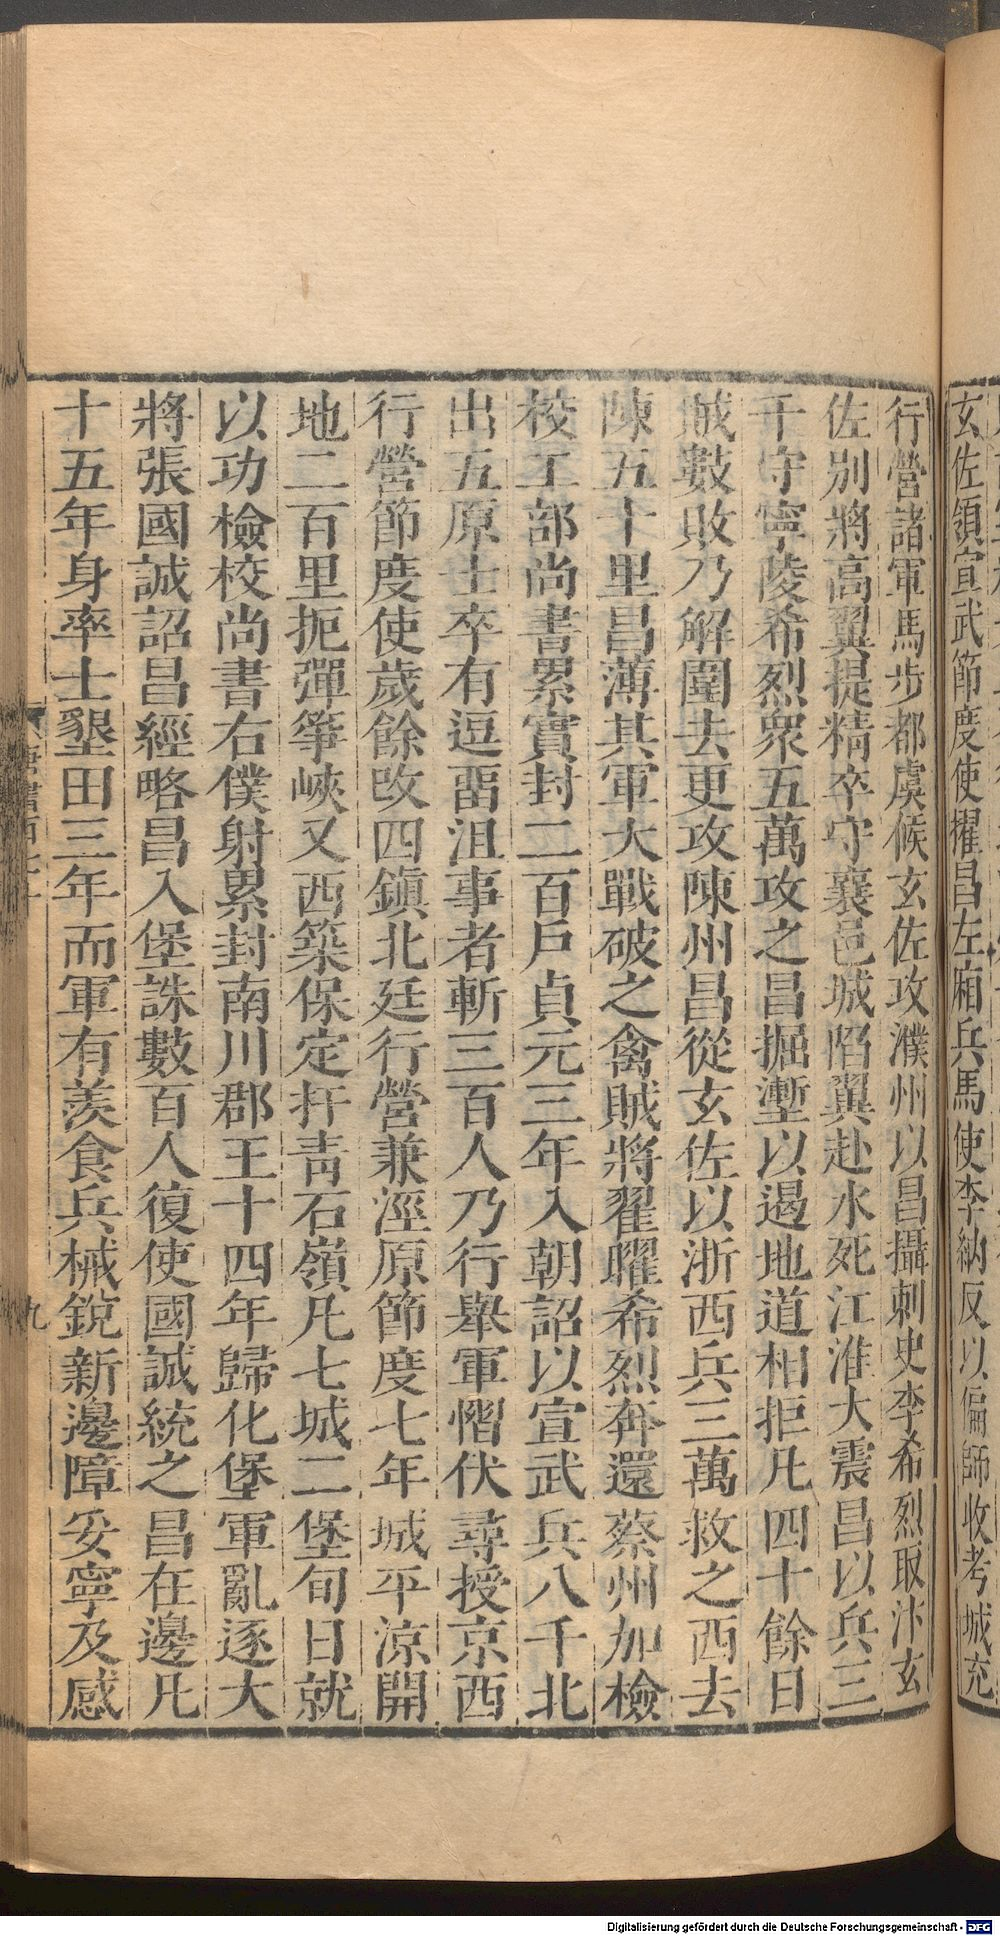 玄佐領宣武節度使擢昌左廂兵馬使李納反以偏師收考城充
行營諸軍馬步都虞候玄佐攻濮州以昌攝刺史李希烈取汴玄
佐別將高翼提精卒守襄邑城陷翼赴水死江淮大震昌以兵三
千守寧陵希烈衆五萬攻之昌掘塹以遏地道相拒凡四十餘日
賊數敗乃解圍去更攻陳州昌從玄佐以浙西兵三萬救之西去
陳五十里昌薄其軍大戰破之禽賊將翟曜希烈奔還蔡州加檢
校工部尚書累實封二百戶貞元三年入朝詔以宣武兵八千北
出五原士卒有逗畱沮事者斬三百人乃行舉軍慴伏尋授京西
行營節度使歲餘改四鎮北廷行營兼涇原節度七年城平涼開
地二百里扼彈箏峽又西築保定扞青石嶺凡七城二堡旬日就
以功檢校尚書右僕射累封南川郡王十四年歸化堡軍亂逐大
將張國誠詔昌經略昌入堡誅數百人復使國誠統之昌在邊凡
十五年身率士墾田三年而軍有羨食兵械銳新邊障妥寧及感
九
Digitalisierung gefördert durch die Deutsche Forschungsgemeinschaft - DFG